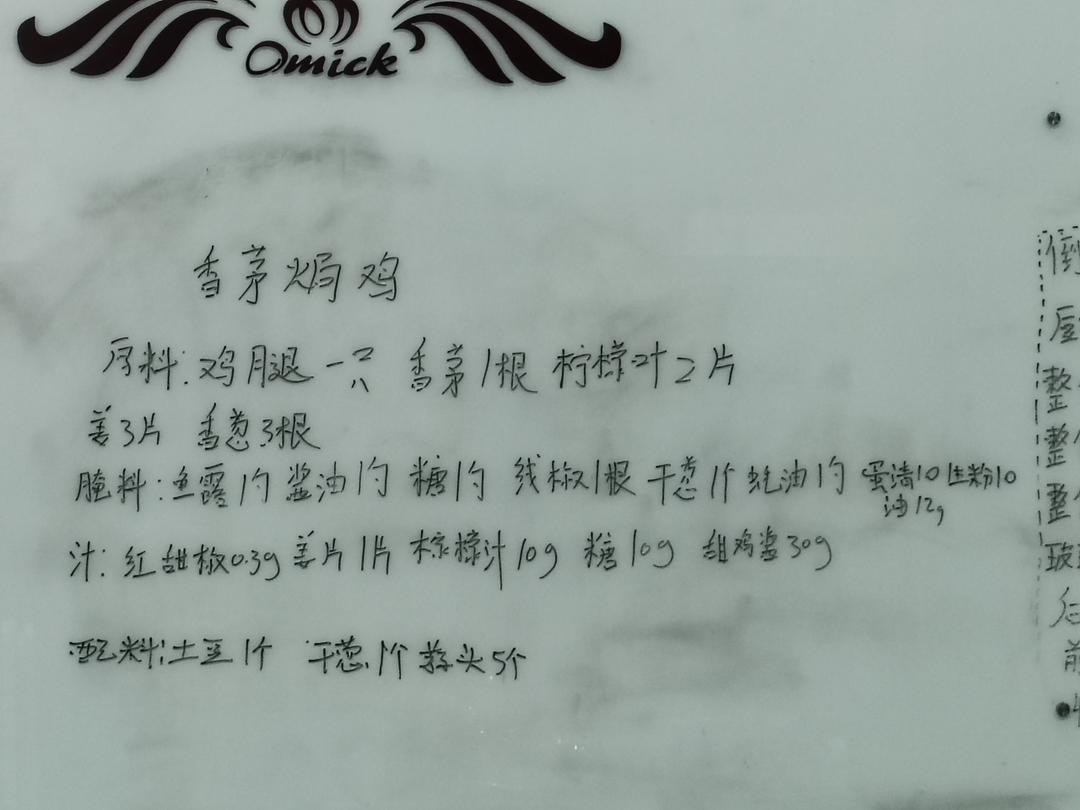 Omick
香茅焗鸡
原料:鸡腿一只 香茅1根 柠檬叶2片
姜3片 香葱3根
腌料:鱼露1勺 酱油1勺 糖1勺 线椒1根 干葱1个 蚝油1勺 蛋清10 生粉10
油12g
汁:红甜椒0.3g 姜片1片 柠檬汁10g 糖10g 甜鸡酱30g
配料:土豆1个 干葱1个 蒜头5个
倒
屋
整
整
整
玻
前